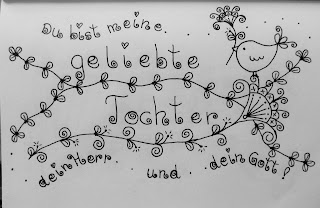 Du bist meine
geliebte
Tochter
dein Herr und dein Gott!